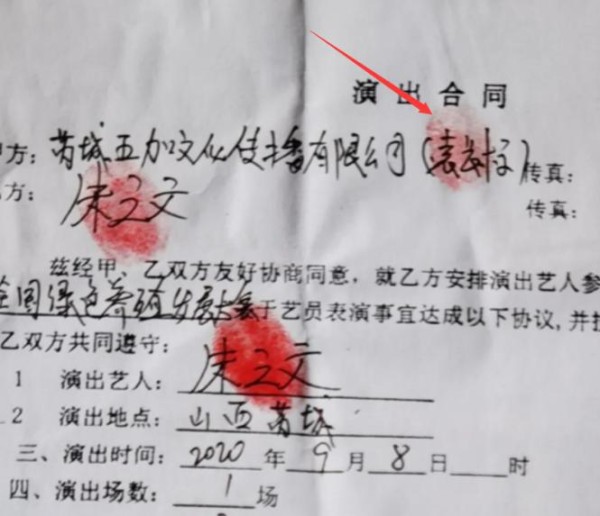 演出合同
甲方：芮城五加文化传播有限公司（袁 传真：
乙方：朱之文 传真：
兹经甲、乙双方友好协商同意，就乙方安排演出艺人参
全国绿色养殖发展大会于艺员表演事宜达成以下协议，并
乙双方共同遵守：
1 演出艺人：朱之文
2 演出地点：山西芮城
三、演出时间：2020年9月8日 时
四、演出场数：1场